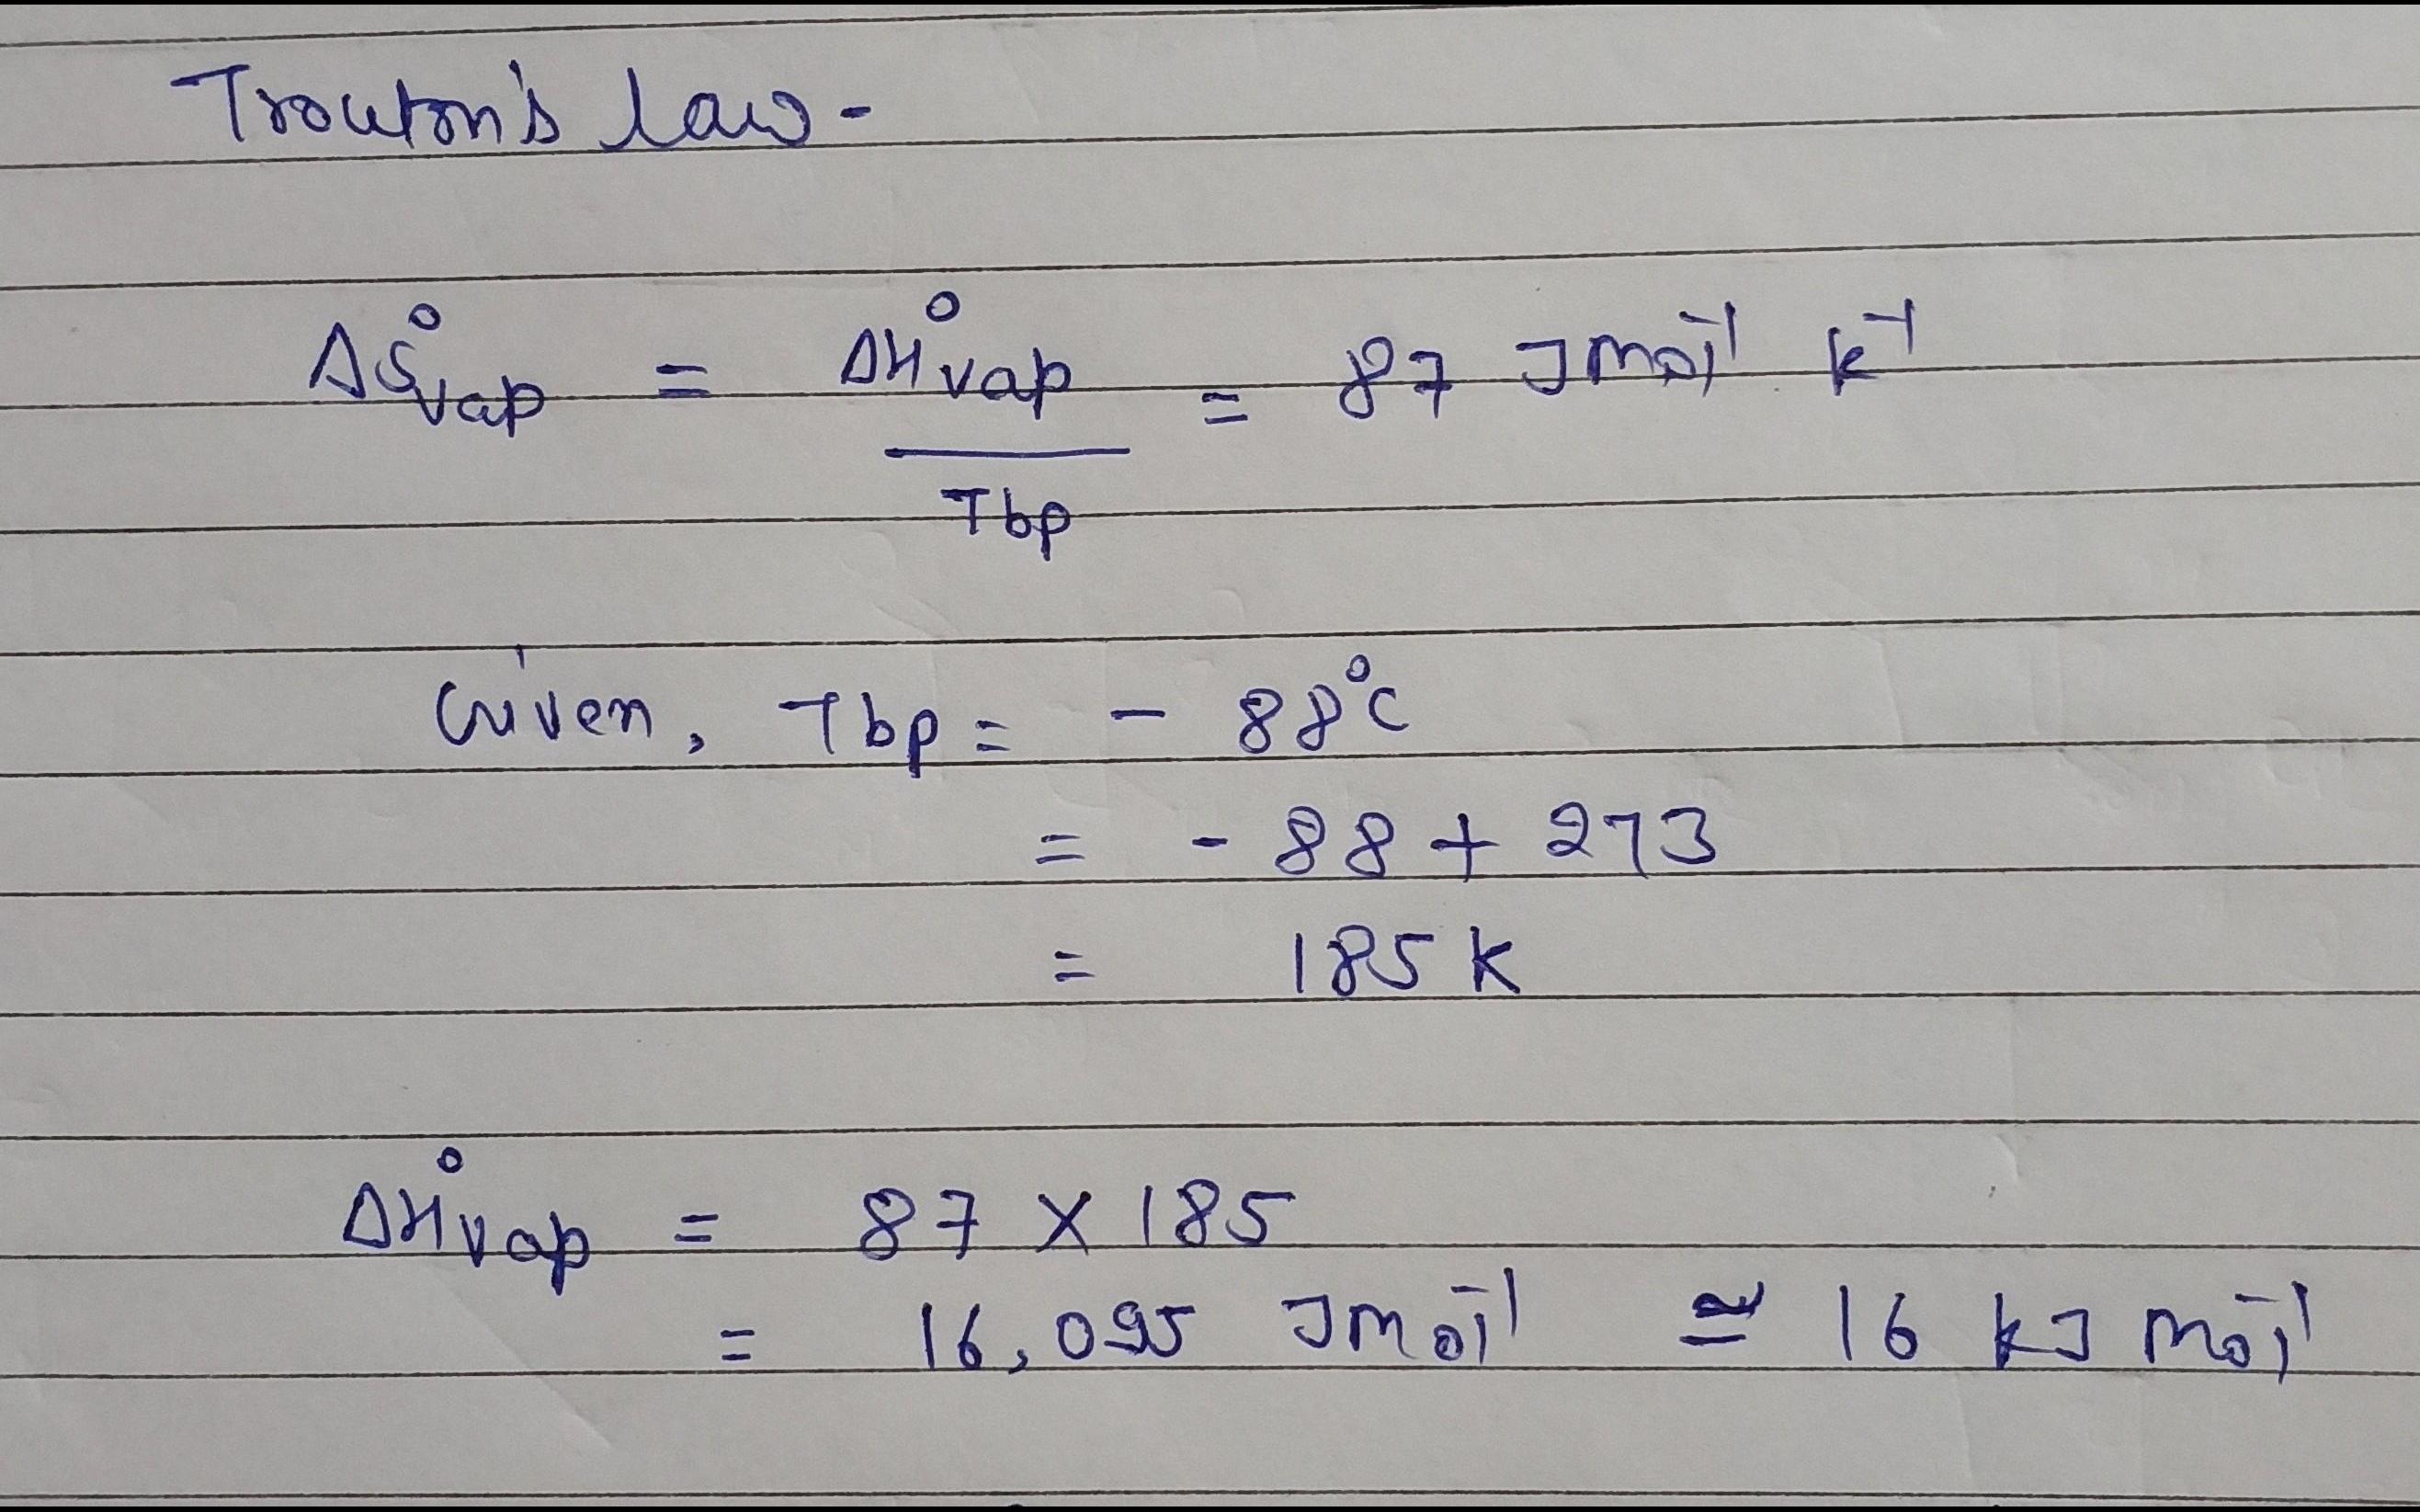 Trouton's law -
ΔS°vap = ΔH°vap / Tbp = 87 J mol⁻¹ k⁻¹
Given, Tbp = - 88°C
= - 88 + 273
= 185 K
ΔH°vap = 87 × 185
= 16,095 J mol⁻¹ ≅ 16 kJ mol⁻¹